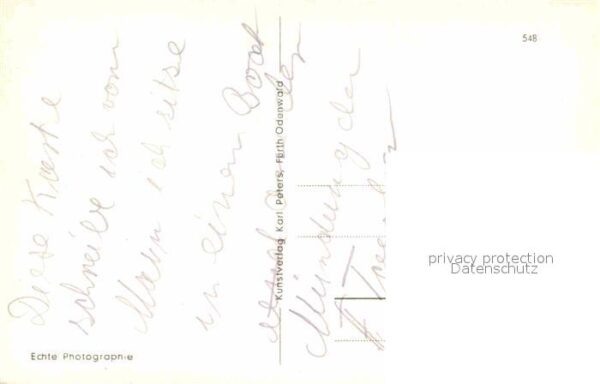 548
Diese Karte
schreibe ich vom
Main ich sitze
in einem Boot
an der
Mündung der
Kunstverlag Karl Peters, Fürth Odenwald
privacy protection
Datenschutz
Echte Photographie